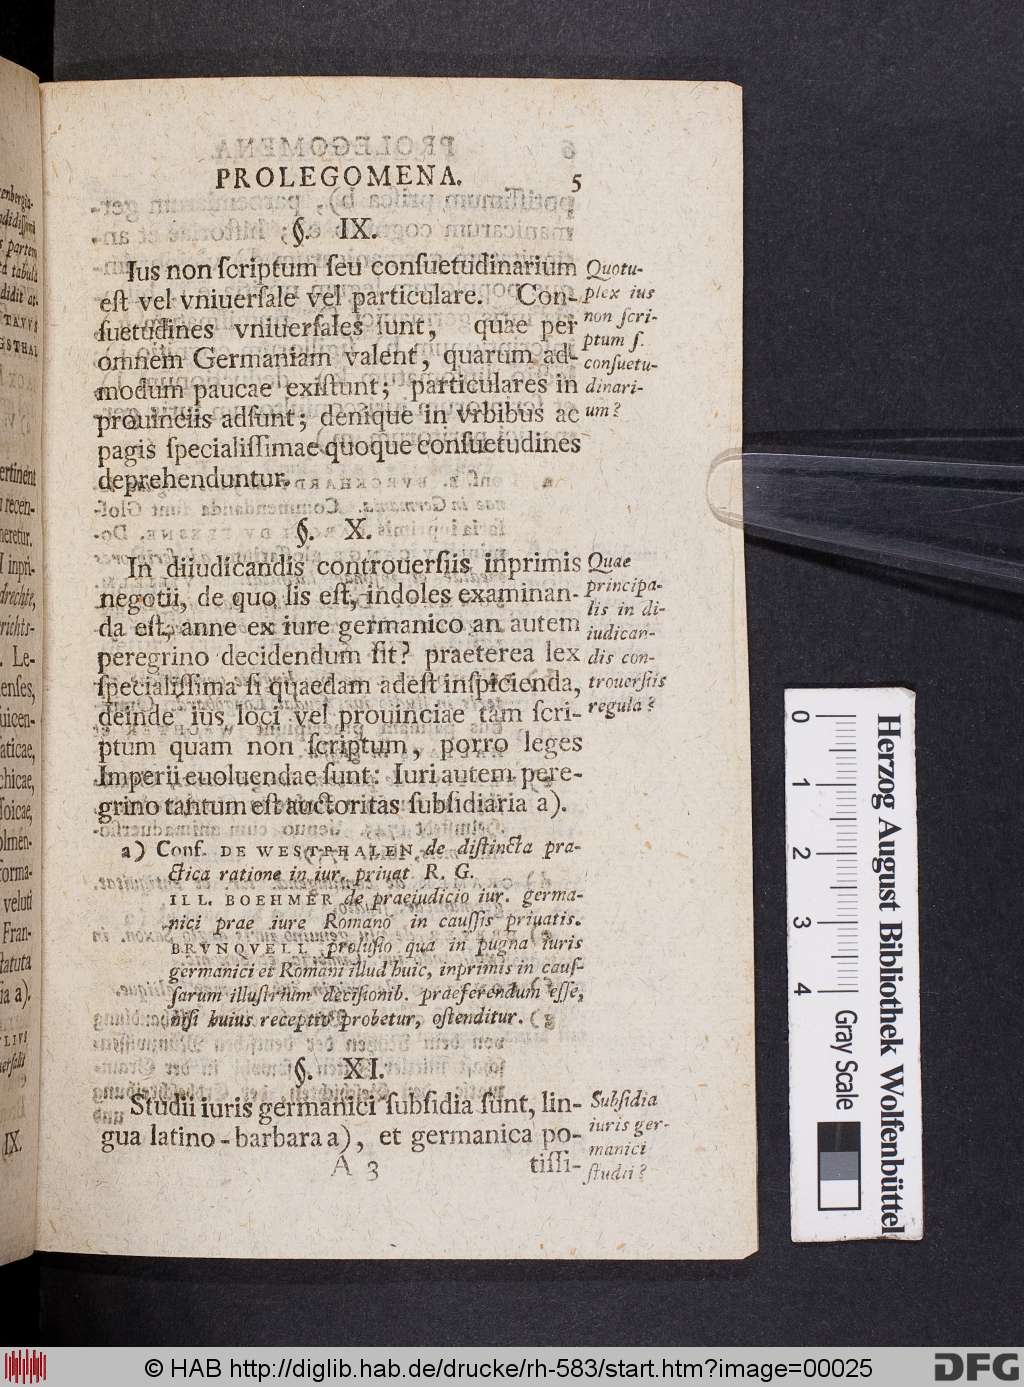 PROLEGOMENA. 5
§. IX.
Ius non ſcriptum ſeu conſuetudinarium
eſt vel vniuerſale vel particulare. Con-
ſuetudines vniuerſales ſunt, quae per
omnem Germaniam valent, quarum ad-
modum paucae exiſtunt; particulares in
prouinciis adſunt; denique in vrbibus ac
pagis ſpecialiſſimae quoque conſuetudines
deprehenduntur.
Quotu-
plex ius
non ſcri-
ptum ſ.
conſuetu-
dinari-
um?
§. X.
In diiudicandis controuerſiis inprimis
negotii, de quo lis eſt, indoles examinan-
da eſt, anne ex iure germanico an autem
peregrino decidendum ſit? praeterea lex
ſpecialiſſima ſi quaedam adeſt inſpicienda,
deinde ius loci vel prouinciae tam ſcri-
ptum quam non ſcriptum, porro leges
Imperii euoluendae ſunt: Iuri autem pere-
grino tantum eſt auctoritas ſubſidiaria a).
Quae
principa-
lis in di-
iudican-
dis con-
trouerſiis
regula?
a) Conf. DE WESTPHALEN de diſtincta pra-
ctica ratione in iur. priuat R. G.
ILL. BOEHMER de praeiudicio iur. germa-
nici prae iure Romano in cauſſis priuatis.
BRVNQVELL proluſio qua in pugna iuris
germanici et Romani illud huic, inprimis in cauſ-
ſarum illuſtrium deciſionib. praeferendum eſſe,
niſi huius receptio probetur, oſtenditur.
§. XI.
Studii iuris germanici ſubſidia ſunt, lin-
gua latino-barbara a), et germanica po-
Subſidia
iuris ger-
manici
ſtudii?
A 3 tiſſi-
0 1 2 3 4
Gray Scale
Herzog August Bibliothek Wolfenbüttel
© HAB http://diglib.hab.de/drucke/rh-583/start.htm?image=00025
DFG